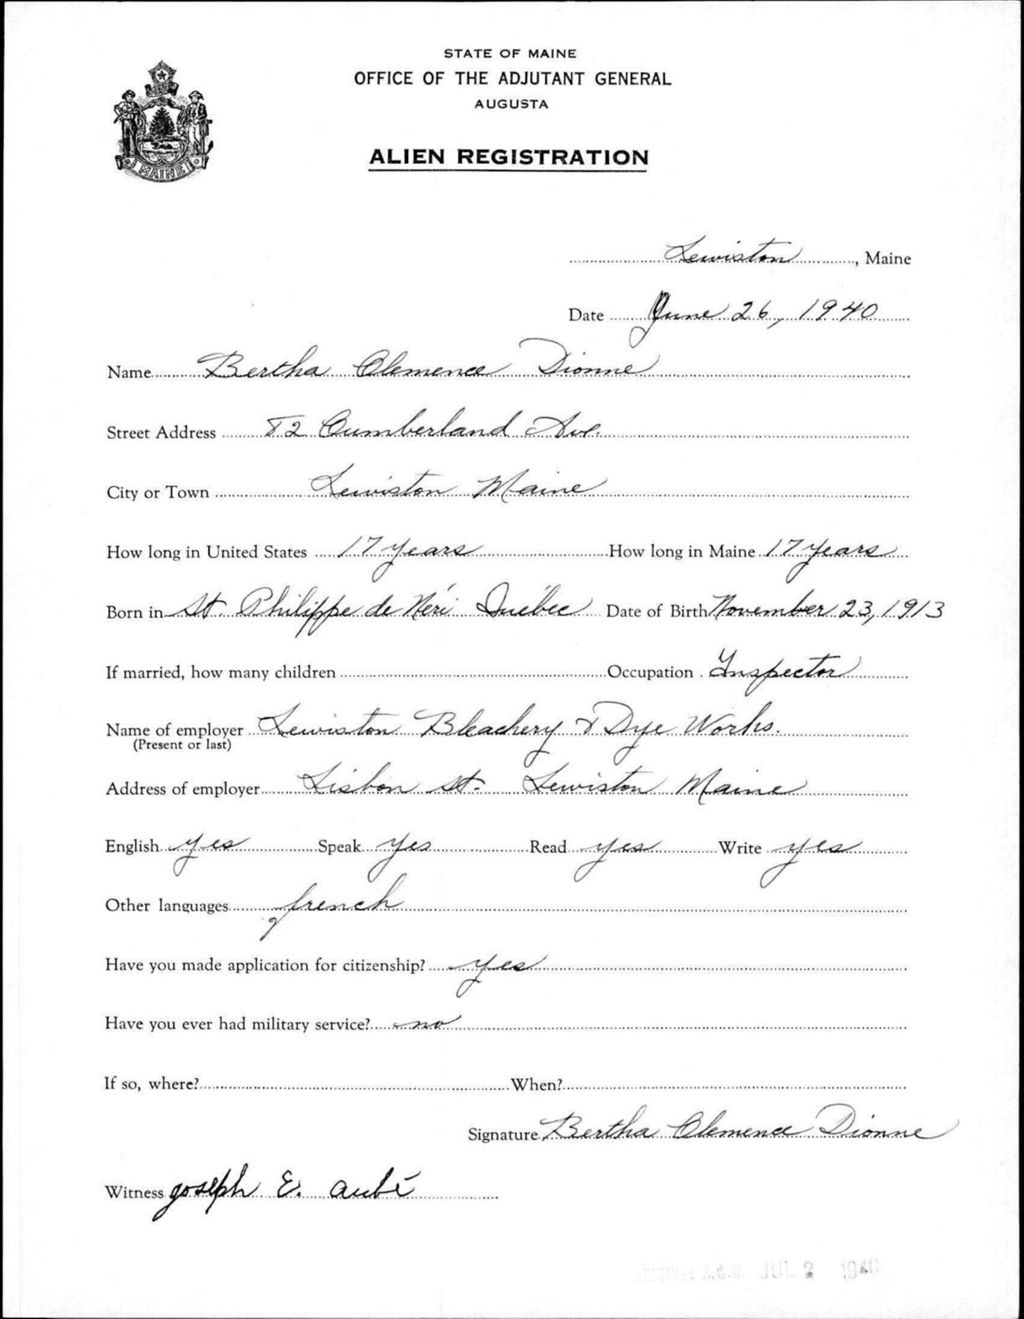 STATE OF MAINE
OFFICE OF THE ADJUTANT GENERAL
AUGUSTA
ALIEN REGISTRATION
MAINE
Lewiston, Maine
Date June 26, 1940
Name Bertha Clemence Dionne
Street Address 82 Cumberland Ave.
City or Town Lewiston Maine
How long in United States 17 years How long in Maine 17 years
Born in St. Philippe de Néri Québec Date of Birth November 23, 1913
If married, how many children Occupation Inspector
Name of employer Lewiston Bleachery & Dye Works.
(Present or last)
Address of employer Lisbon St. Lewiston Maine
English yes Speak yes Read yes Write yes
Other languages french
Have you made application for citizenship? yes
Have you ever had military service? no
If so, where? When?
Signature Bertha Clemence Dionne
Witness joseph E. aubé
A.G.O. JUL 2 1940